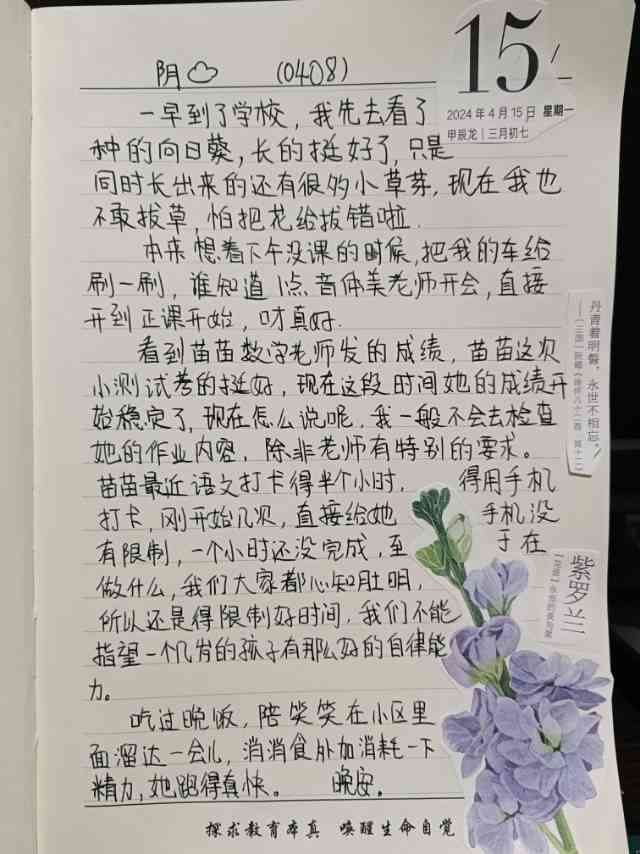 15
2024年4月15日 星期一
甲辰龙|三月初七
阴 (0408)
一早到了学校，我先去看了
种的向日葵，长的挺好了，只是
同时长出来的还有很多小草芽，现在我也
不敢拔草，怕把花给拔错啦.
本来想着下午没课的时候，把我的车给
刷一刷，谁知道1点音体美老师开会，直接
开到正课开始，口才真好.
看到苗苗数学老师发的成绩，苗苗这次
小测试考的挺好，现在这段时间她的成绩开
始稳定了，现在怎么说呢，我一般不会去检查
她的作业内容，除非老师有特别的要求。
苗苗最近语文打卡得半个小时， 得用手机
打卡，刚开始几次，直接给她 手机没
有限制，一个小时还没完成，至 于在
做什么，我们大家都心知肚明，
所以还是得限制好时间，我们不能
指望一个几岁的孩子有那么好的自律能
力。
吃过晚饭，陪笑笑在小区里
面溜达一会儿，消消食外加消耗一下
精力，她跑得真快。 晚安。
丹青着明誓，永世不相忘。
紫罗兰
探求教育本真 唤醒生命自觉